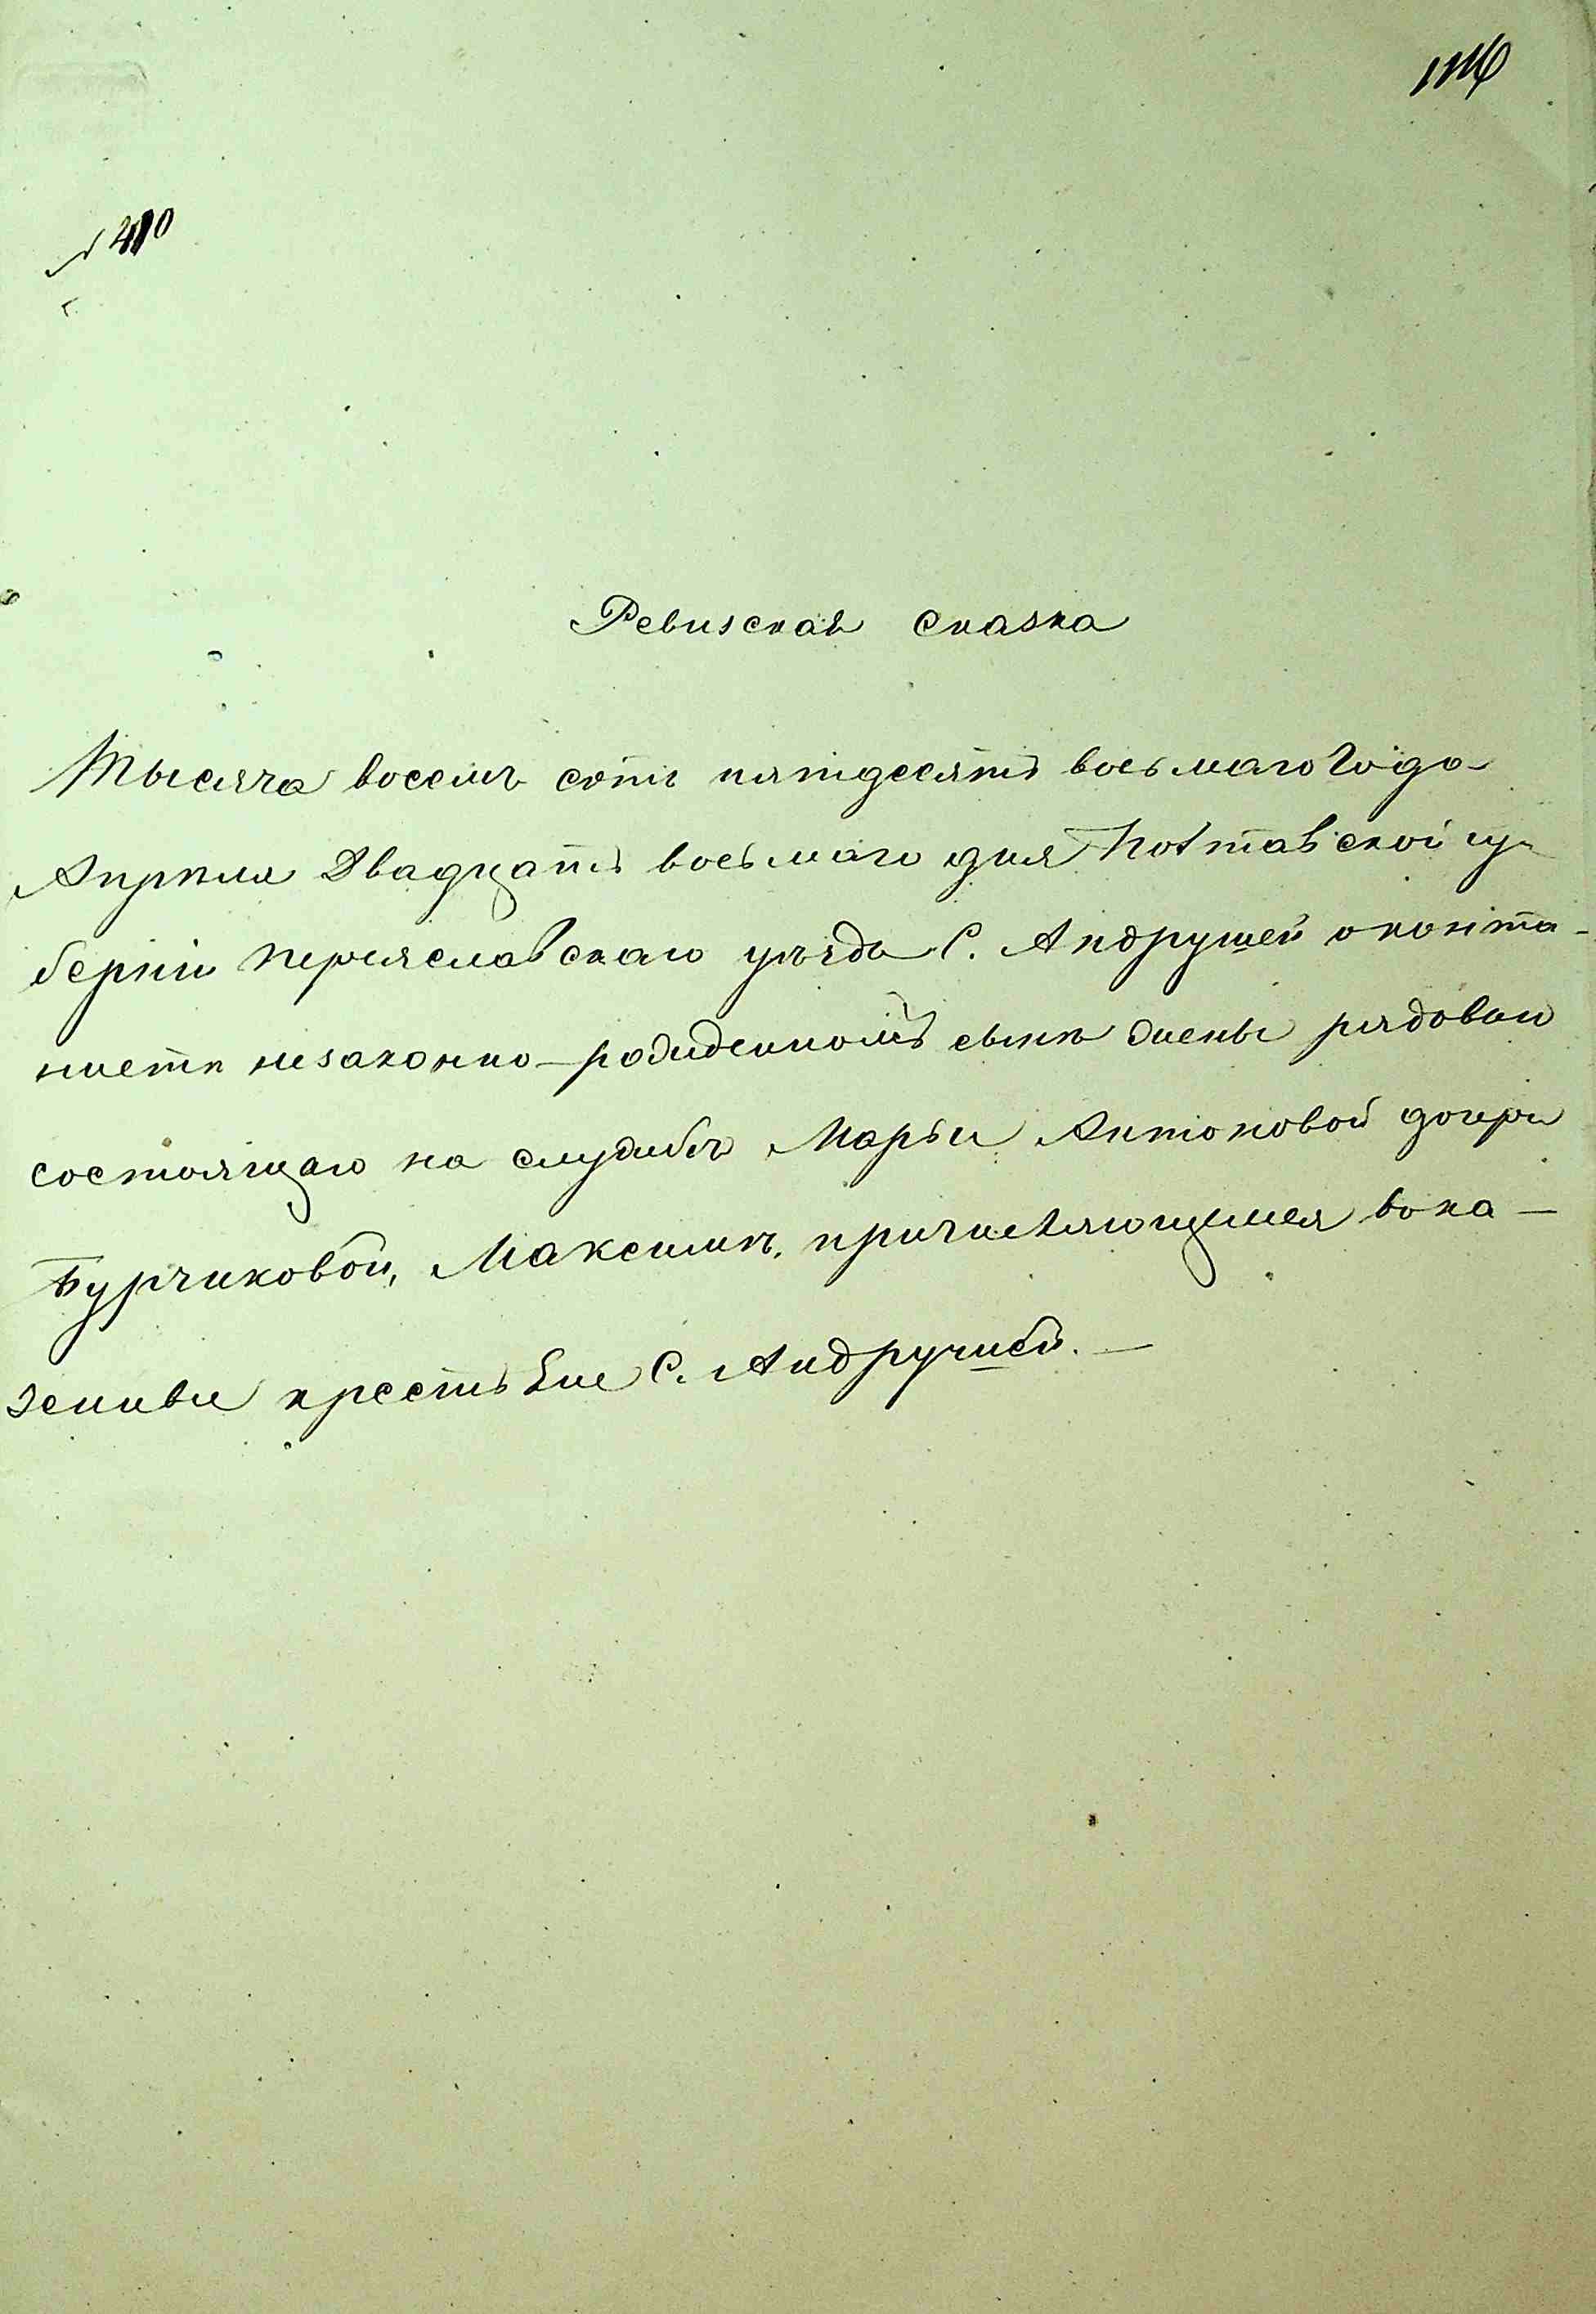 № 240
Ревизская сказка
Тысяча восемъ сотъ пятидесятъ восьмаго Года
Апрѣля Двадцать восьмаго дня Полтавской гу-
берніи Переяславскаго уѣзда С. Андрушей о конто-
нистѣ незаконно-рожденномъ сынѣ жены рядоваго
состоящаго на службѣ Марьи Антоновой дочери
Бурчиковой, Максимѣ, причисляющемся вока-
зенныи крестьяне С. Андрушей. —